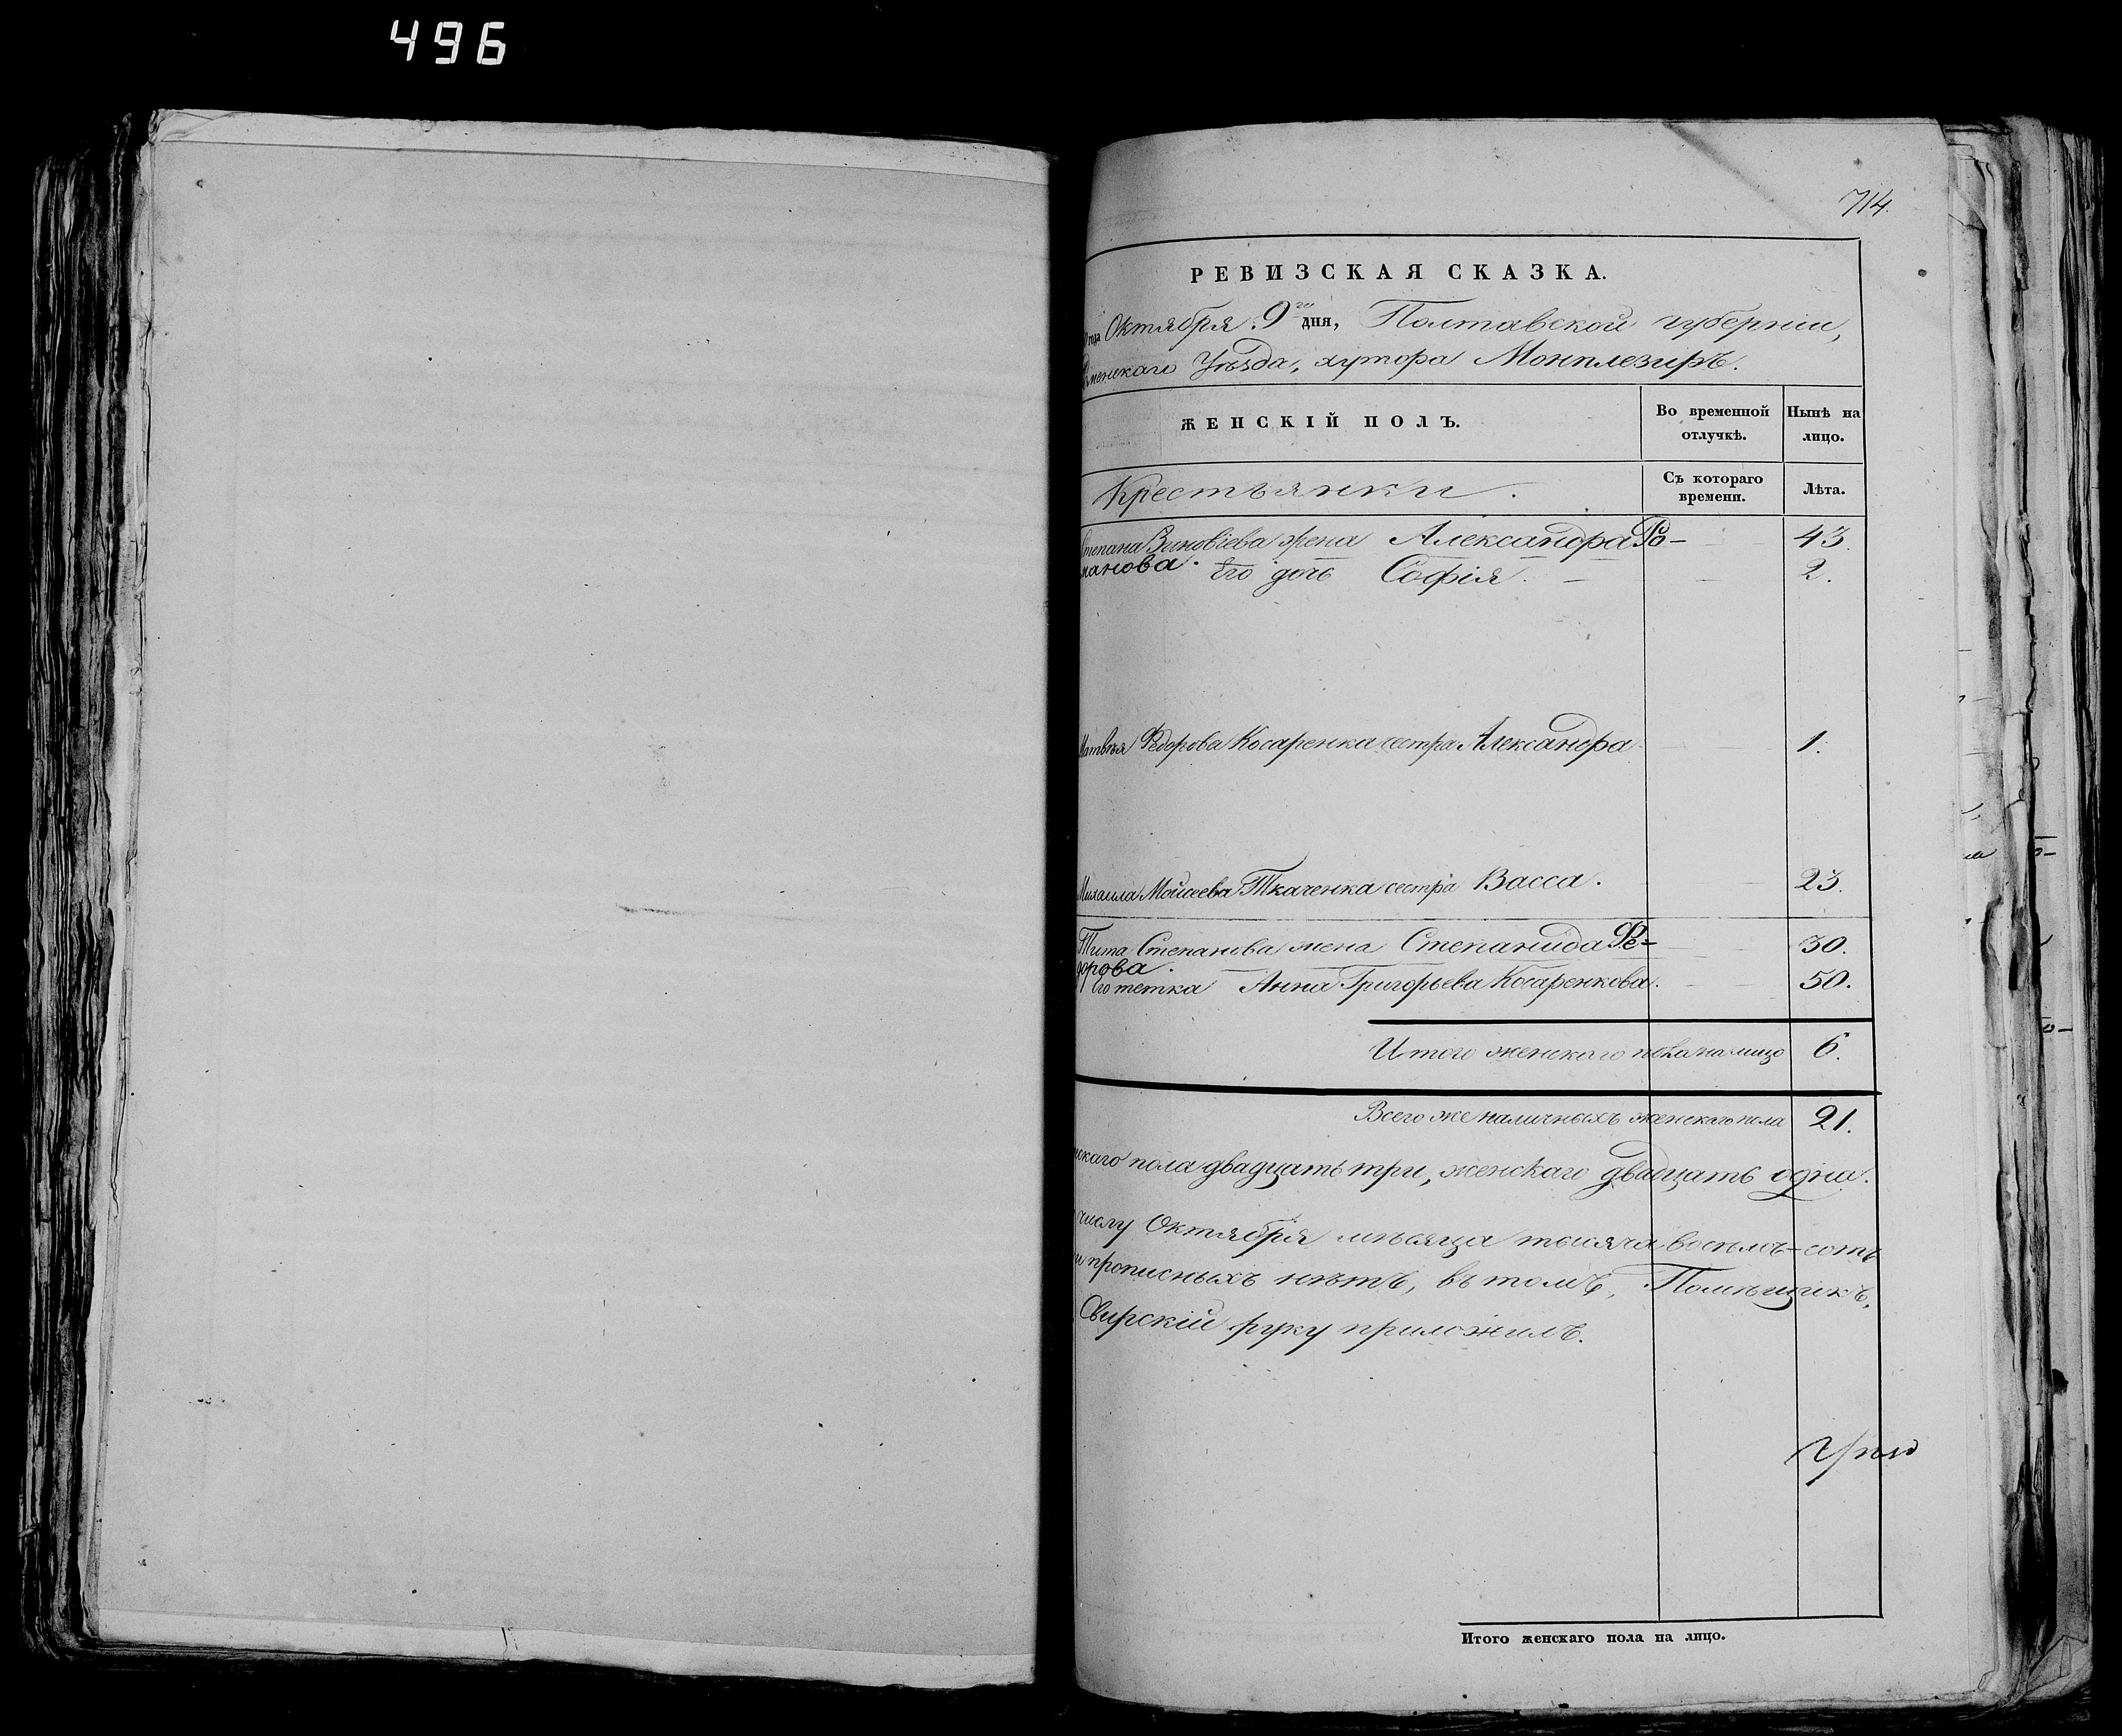 496
714.
РЕВИЗСКАЯ СКАЗКА.
года Октября 9го дня, Полтавской губерніи,
Роменскаго Уѣзда, хутора Монплезиръ.
ЖЕНСКІЙ ПОЛЪ.
Во временной отлучкѣ.
Нынѣ на лицо.
Крестьянки.
Съ котораго времени.
Лѣта.
Степана Зиновіева жена Александра Ро- 43.
манова. Его дочь Софія. 2.
Матвѣя Федорова Косаренка сестра Александра 1.
Михаила Мойсеева Ткаченка сестра Васса. 23.
Тита Степанова жена Степанида Фе- 30.
дорова.
Его тетка Анна Григорьева Косаренкова. 50.
Итого женскаго пола на лицо 6.
Всего же наличныхъ женскаго пола 21.
скаго пола двадцать три, женскаго двадцать одна.
числу Октября мѣсяца тысяча восемь-сотъ
и прописныхъ нѣтъ, въ томъ, Помѣщикъ,
Свирскій руку приложилъ.
Итого женскаго пола на лицо.